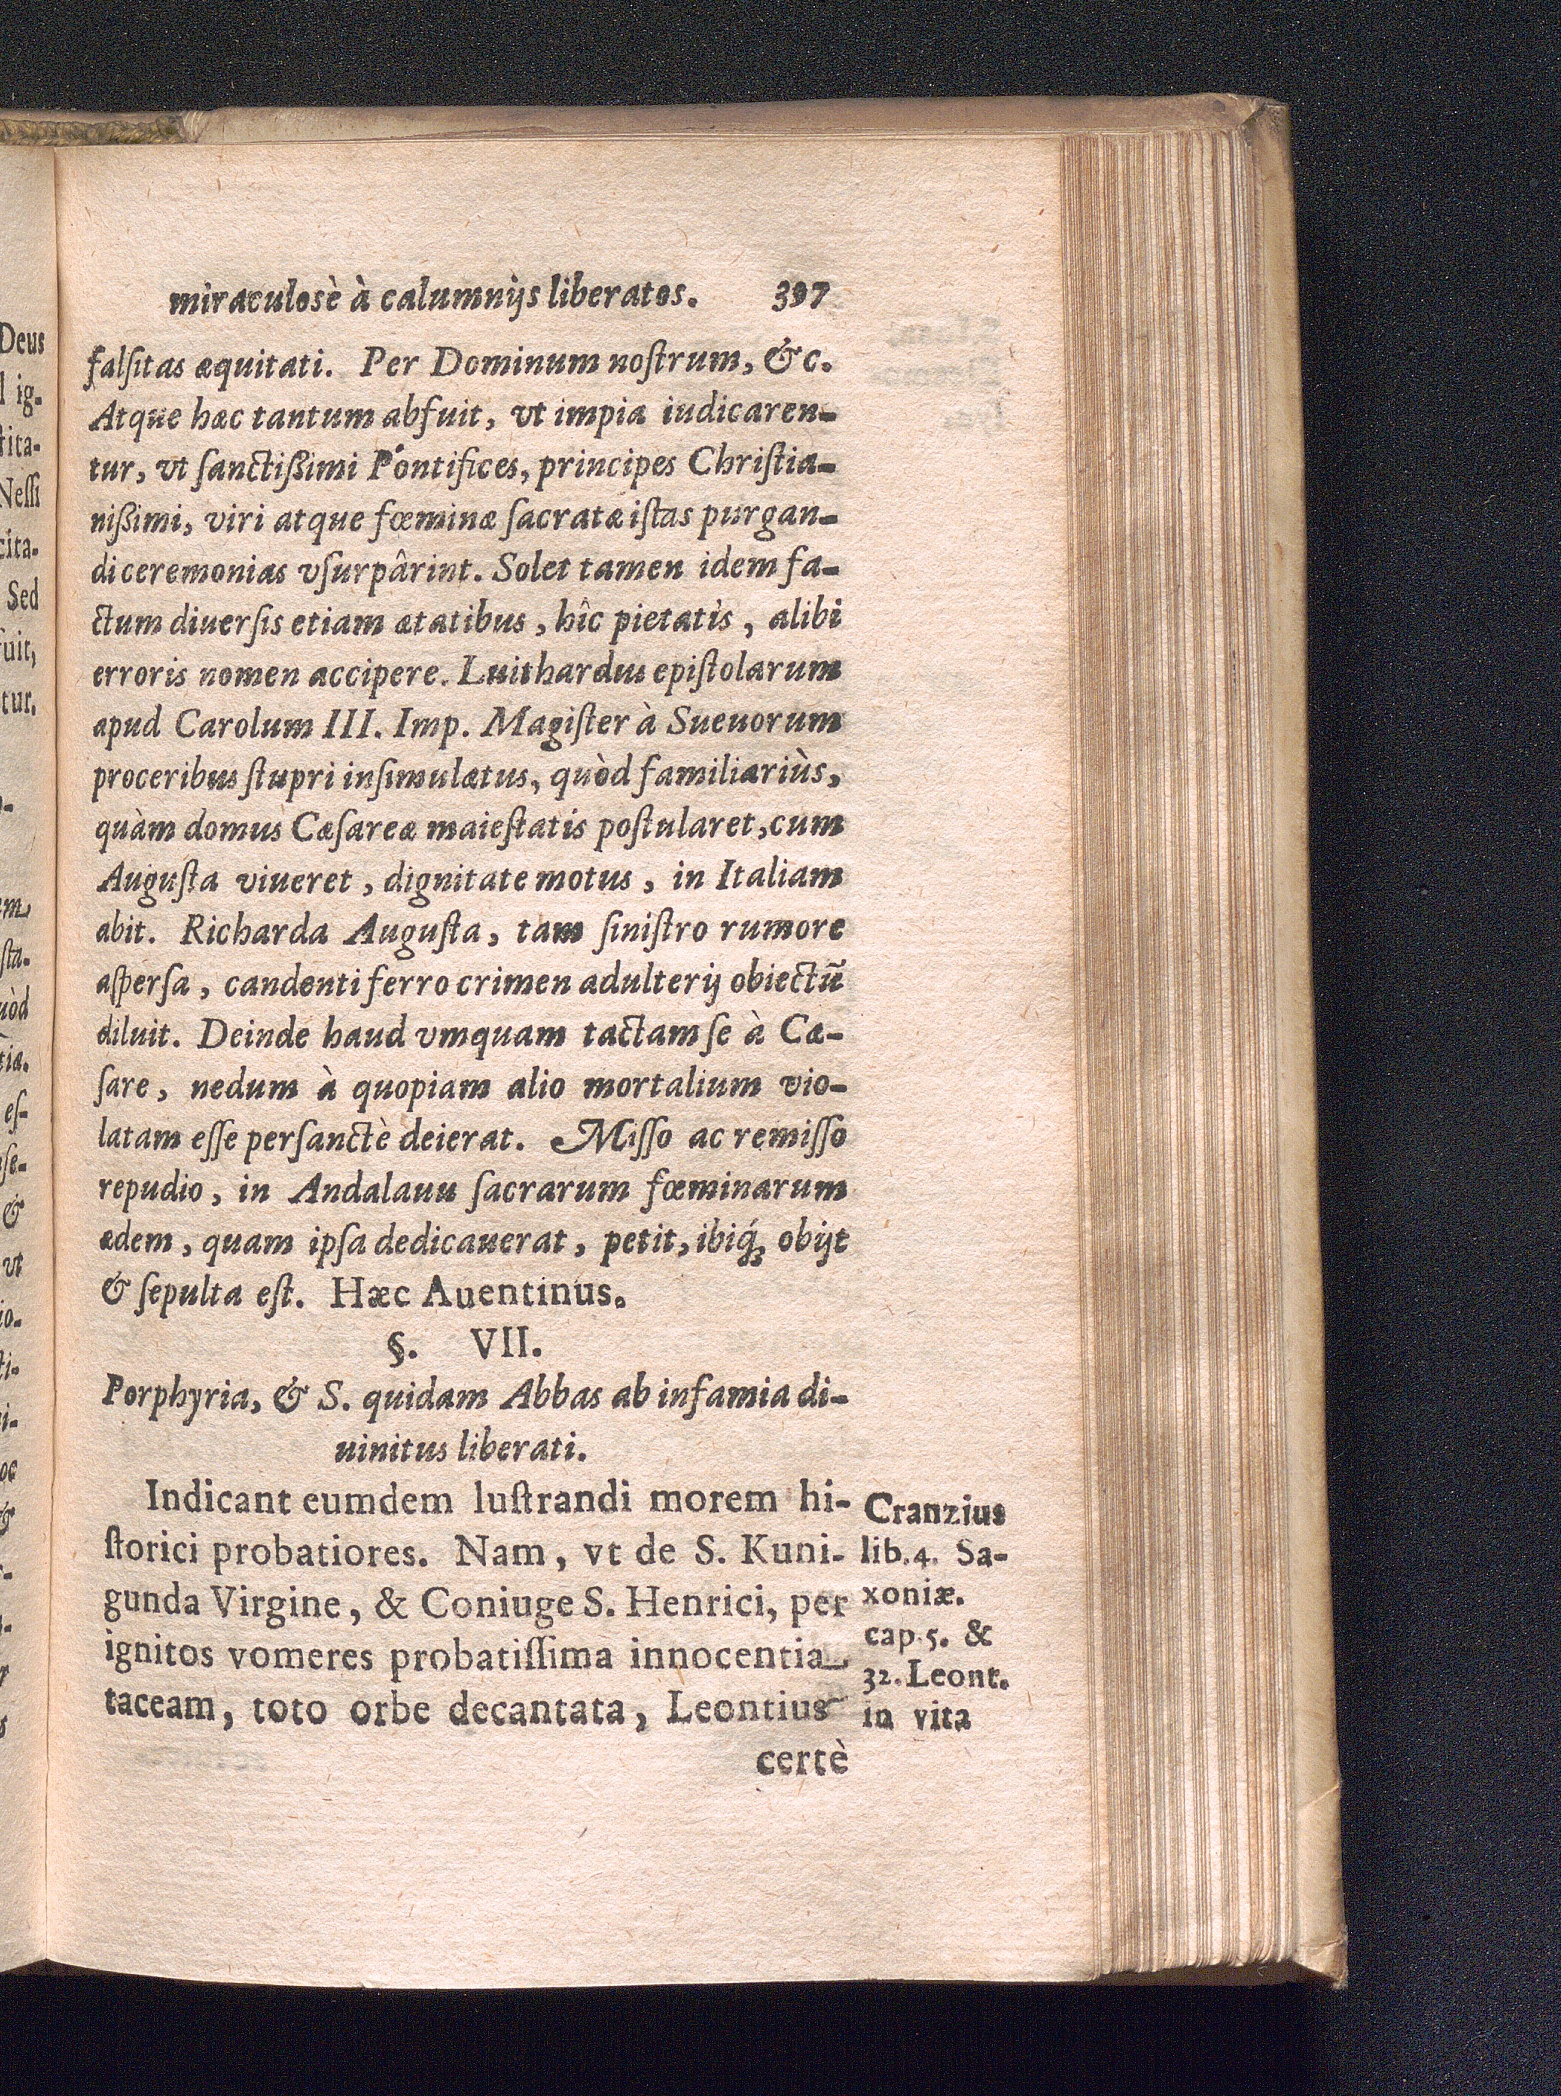 miraculosè à calumnijs liberatos. 397
falſitas æquitati. Per Dominum noſtrum, &c.
Atque hæc tantum abfuit, vt impia iudicaren-
tur, vt ſanctißimi Pontifices, principes Chriſtia-
nißimi, viri atque fœminæ ſacratæ iſtas purgan-
di ceremonias vſurpârint. Solet tamen idem fa-
ctum diuerſis etiam ætatibus, hîc pietatis, alibi
erroris nomen accipere. Luithardus epiſtolarum
apud Carolum III. Imp. Magiſter à Sueuorum
proceribus ſtupri inſimulatus, quòd familiariùs,
quàm domus Cæſareæ maieſtatis poſtularet, cum
Auguſta viueret, dignitate motus, in Italiam
abit. Richarda Auguſta, tam ſiniſtro rumore
aſperſa, candenti ferro crimen adulterij obiectũ
diluit. Deinde haud vmquam tactam ſe à Cæ-
ſare, nedum à quopiam alio mortalium vio-
latam eſſe perſanctè deierat. Miſſo ac remiſſo
repudio, in Andalauu ſacrarum fœminarum
ædem, quam ipſa dedicauerat, petit, ibiq́; obijt
& ſepulta eſt. Hæc Auentinus.
§. VII.
Porphyria, & S. quidam Abbas ab infamia di-
uinitus liberati.
Indicant eumdem luſtrandi morem hi-
ſtorici probatiores. Nam, vt de S. Kuni-
gunda Virgine, & Coniuge S. Henrici, per
ignitos vomeres probatiſſima innocentia
taceam, toto orbe decantata, Leontius
certè
Cranzius
lib.4. Sa-
xoniæ.
cap.5. &
32. Leont.
in vita
Deus
ig-
Sed
tur.
&
vt